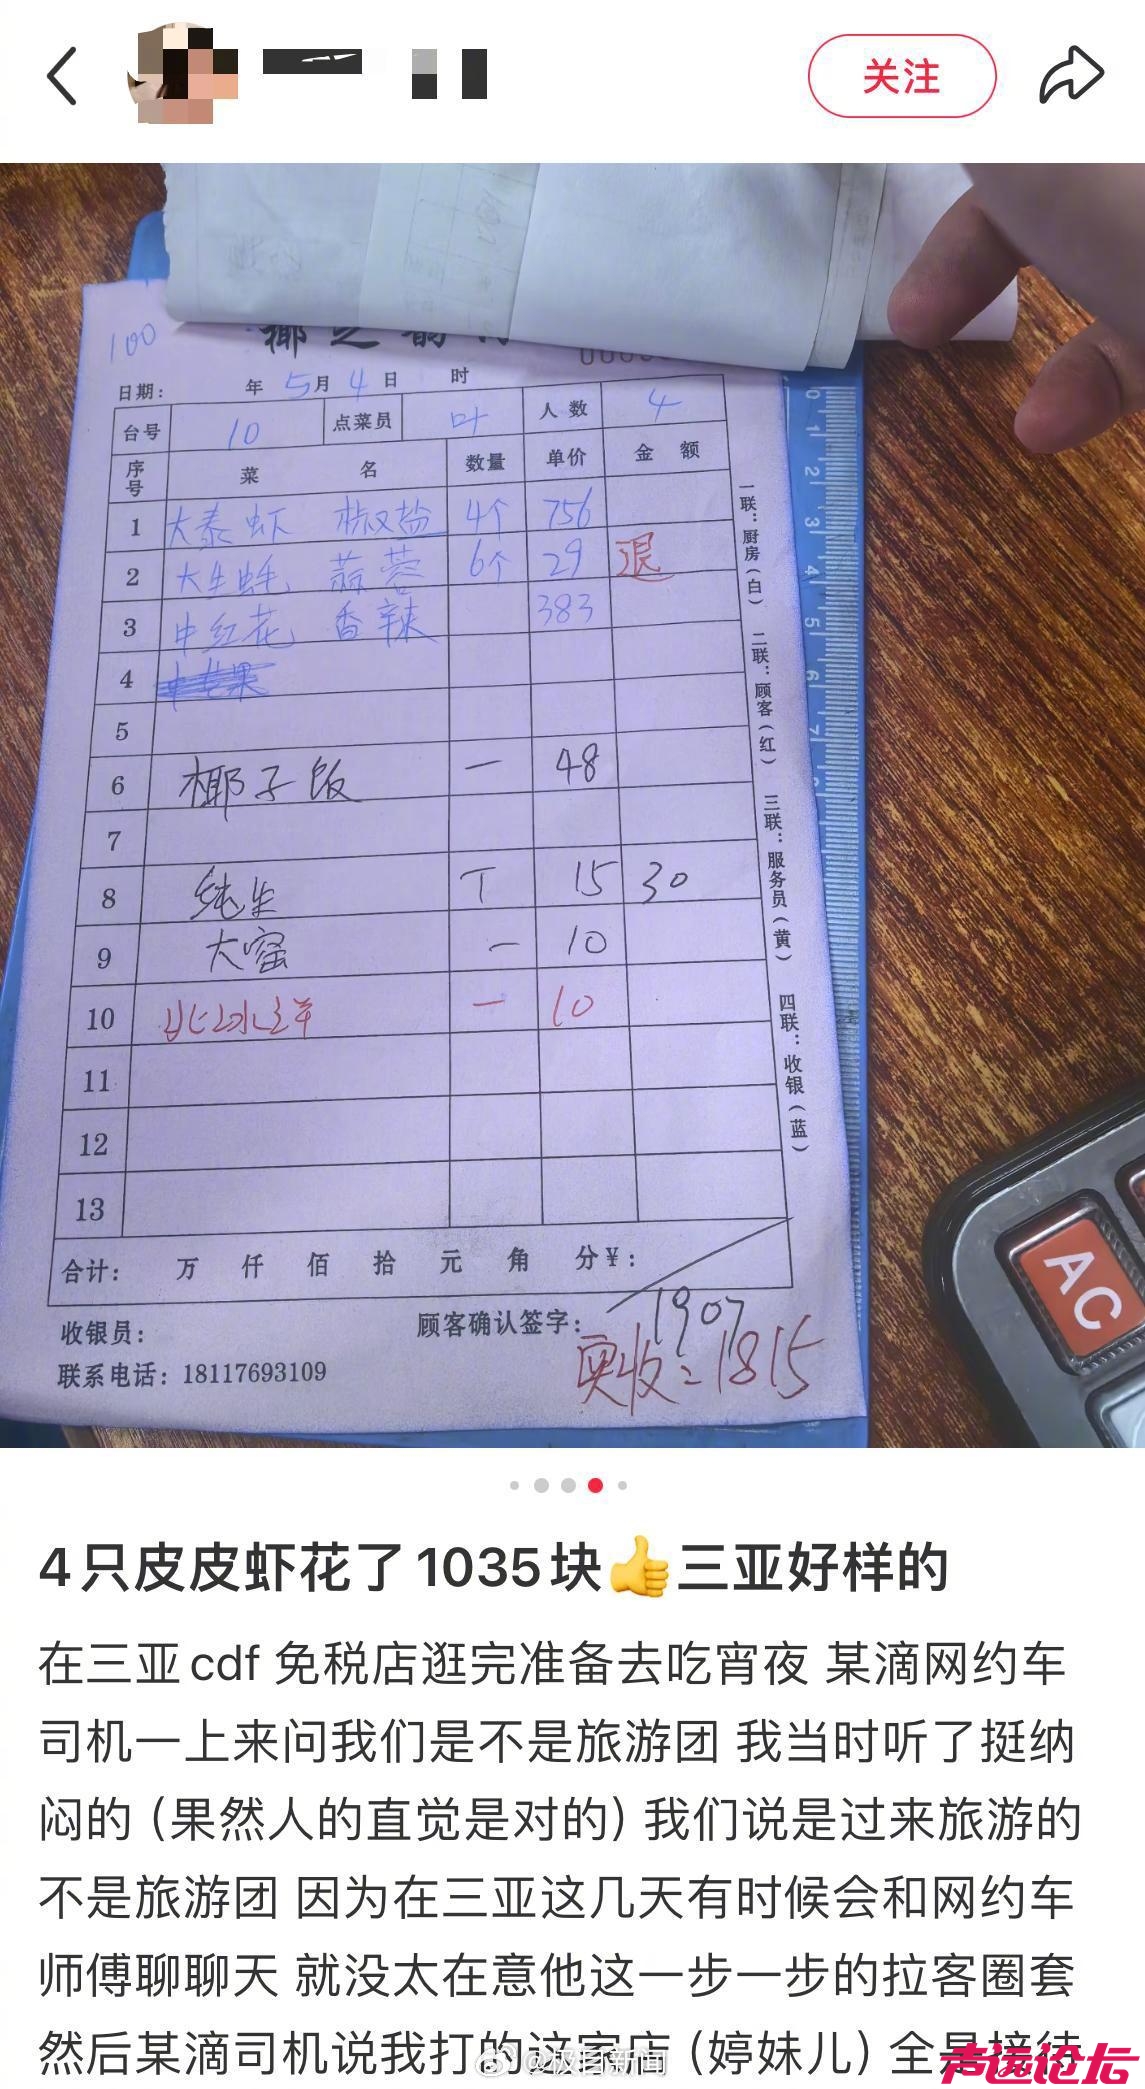 关注
100
椰之韵
日期： 年 5月 4日 时
台号 10 点菜员 叶 人数 4
序号 菜 名 数量 单价 金 额
1 大泰虾 椒盐 4个 756
2 大生蚝 蒜蓉 6个 29 退
3 中红花 香辣 383
4
5
6 椰子饭 一 48
7
8 纯生 T 15 30
9 大窑 一 10
10 北冰洋 一 10
11
12
13
一联：厨房（白） 二联：顾客（红） 三联：服务员（黄） 四联：收银（蓝）
合计： 万 仟 佰 拾 元 角 分￥：
1907
收银员： 顾客确认签字：
实收：1815
联系电话：18117693109
0 1 2 3 4 5 6 7
AC
4只皮皮虾花了1035块👍三亚好样的
在三亚cdf 免税店逛完准备去吃宵夜 某滴网约车
司机一上来问我们是不是旅游团 我当时听了挺纳
闷的（果然人的直觉是对的）我们说是过来旅游的
不是旅游团 因为在三亚这几天有时候会和网约车
师傅聊聊天 就没太在意他这一步一步的拉客圈套
然后某滴司机说我打的这家店（婷妹儿）全是接待
@极目新闻
声远论坛